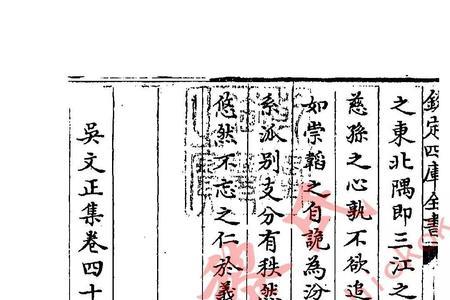 欽定四庫全書
之東北隅即三江之
慈孫之心孰不欲追
如崇韜之自詭為汾
系派別支分有秩然
悠然不忘之仁於義
吳文正集卷四十